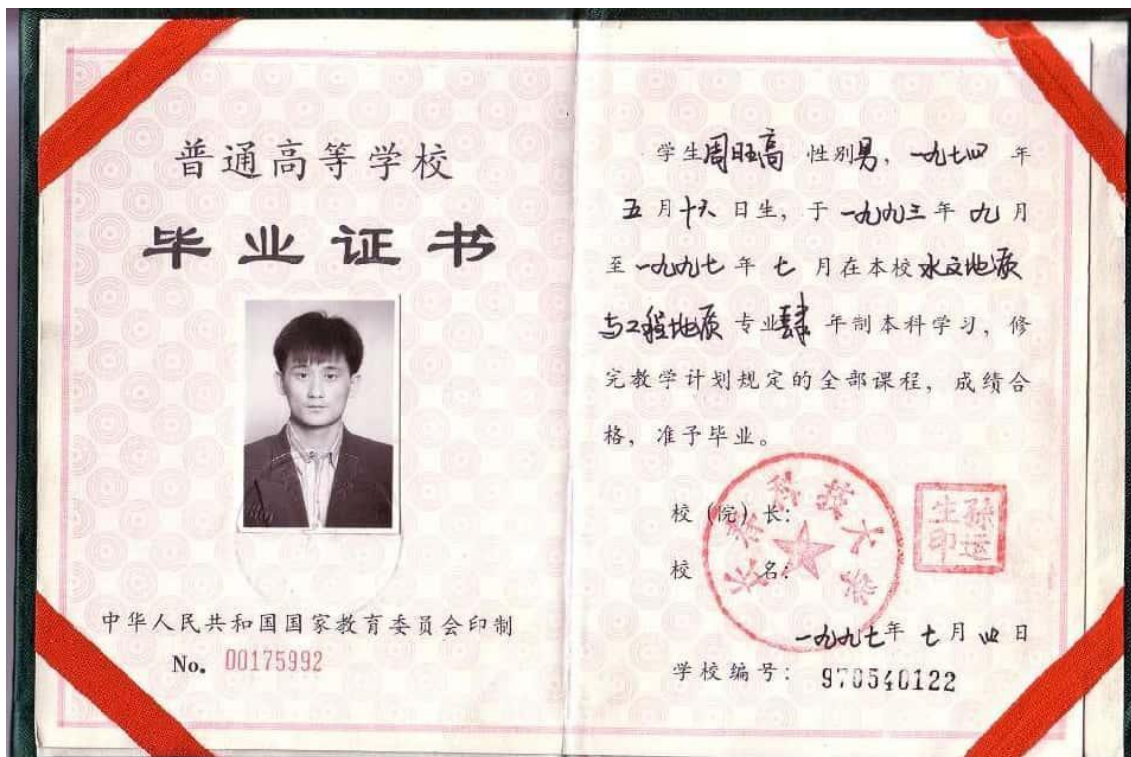 普通高等学校
毕业证书
中华人民共和国国家教育委员会印制
No. 00175992
学生周旺高 性别男，一九七四 年
五月十六日生，于一九九三年九月
至一九九七年 七 月在本校水文地质
与工程地质 专业肆 年制本科学习，修
完教学计划规定的全部课程，成绩合
格，准予毕业。
校（院）长：
孙运生印
校 名：
长春科技大学
一九九七年 七月四日
学校编号：970540122